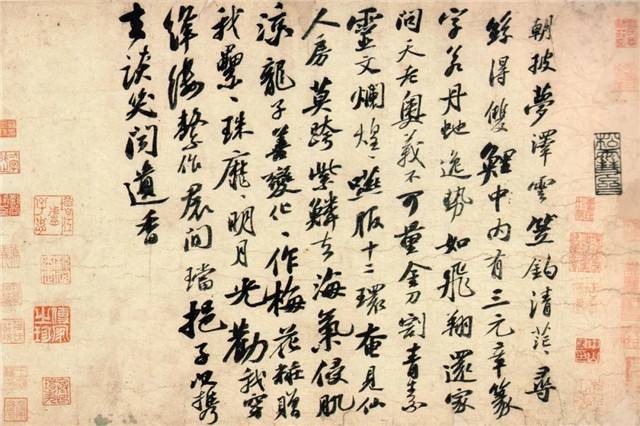 朝披夢澤雲笠釣清茫〻尋
絲得雙鯉中内有三元章篆
字若丹虵逸勢如飛翔還家
問天老奧義不可量金刀割青素
靈文爛煌〻嚥服十二環奄見仙
人房莫跨紫鱗去海氣侵肌
涼龍子善變化〻作梅花糚贈
我纍〻珠靡〻明月光勸我穿
絳縷繫作裠間璫挹子以攜
去談笑聞遺香